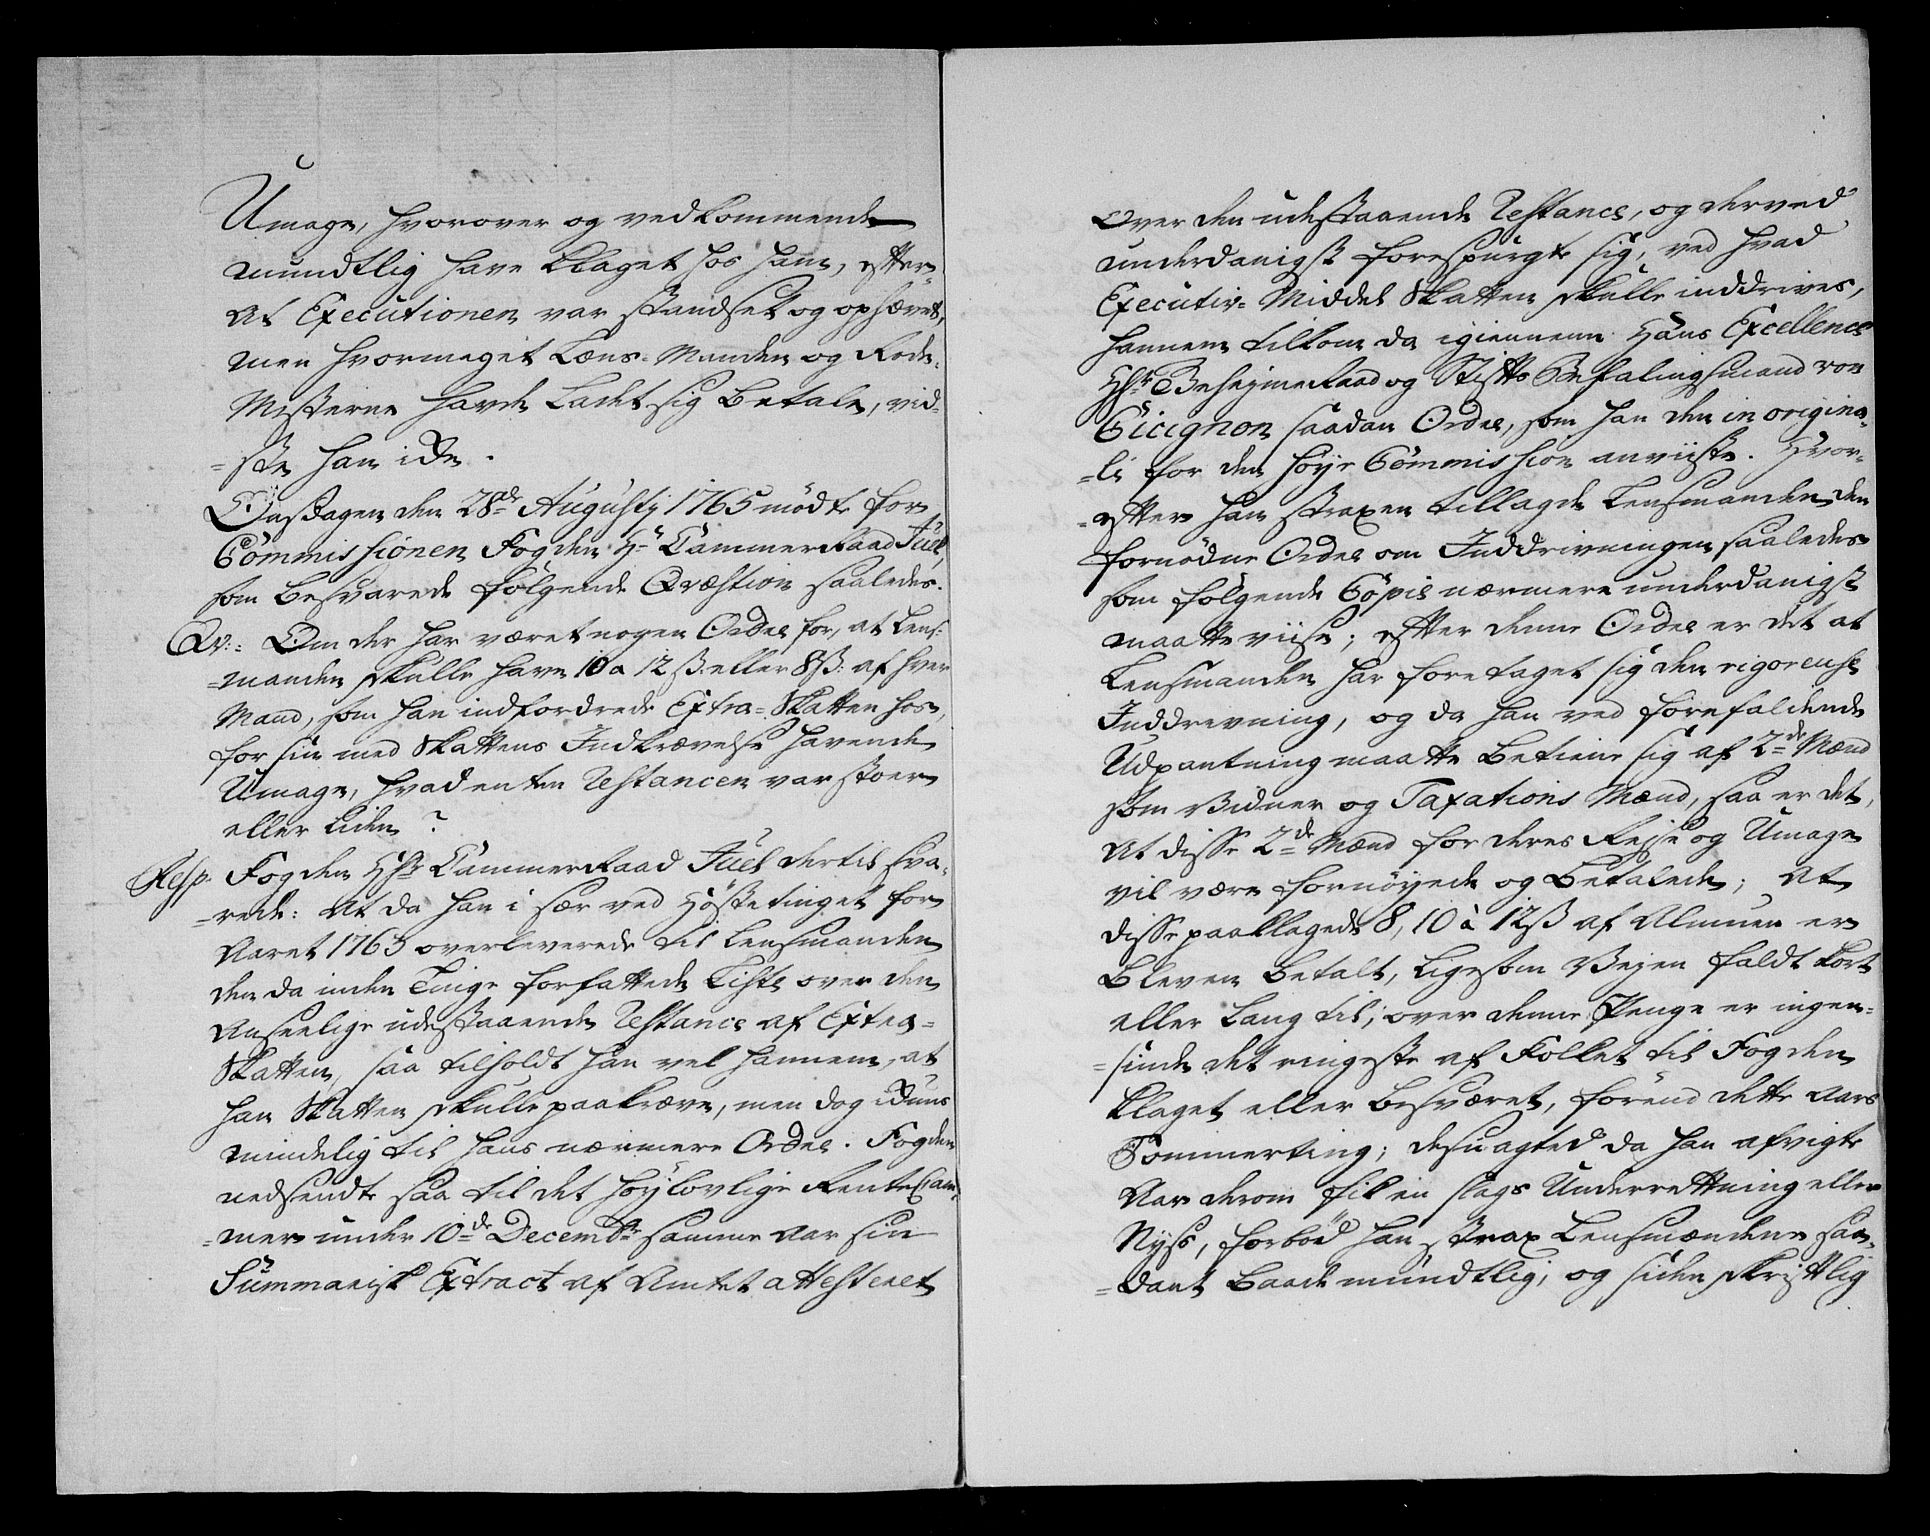 Umage, hvorover og vedkommende
mundtlig have klaget hos ham, efter-
at Executionen var standset og ophævet,
men hvormeget Læns-Manden og Rode-
Mesterne havde ladet sig betale, vid-
-ste han ike.
Onsdagen den 28de Augustj 1765 mødte for
Commissionen Fogden Hr Cammer Raad Juel,
som besvarede følgende Qvæstion saaledes.
Qv:- Om der har været nogen Ordre for, at Lens-
-manden skulle have 10 a 12 ß: eller 8 ß: af hver
Mand, som han indfordrede Extra-Skatten hos,
for sin med Skattens Indkrævelse havende
Umage, hvad enten Restancen var stoer
eller liden?
Resp. Fogden Hr Cammer Raad Juel dertil sva-
-rede: At da han i sær ved Høstetinget for
Aaret 1763 overleverede til Lensmanden
den da inden Tinge forfattede Liste over den
Anseelige udestaaende Restance af Extra-
Skatten, saa tilholdt han vel hannem, at
han Skatten skulle paakræve, men dog ikuns
mindelig til hans nærmere Ordre. Fogden
nedsendte saa til det høylovlige Rente Cam-
-mer under 10de Decembr samme Aar sin
Summarisk Extract af Amtet attesteret
Over den udestaaende Restance, og derved
underdanigst forespurgte sig, ved hvad
Executiv-Middel Skatten skulle inddrives,
hannem tilkom da igiennem Hans Excellence
Hr Geheyme Raad og Stifts Befalingsmand von
Cicignon saadan Ordre, som han den in origina-
-li for den høye Commission anviiste. Hvor-
-efter han straxen tillagde Lensmanden den
fornødne Ordre om Inddrivningen saaledes
som følgende Copie nærmere underdanigst
maatte viise; efter denne Ordre er det at
Lensmanden har foretaget sig den rigoreuse
Inddrevning, og da han ved forefaldende
Udpantning maatte betiene sig af 2de Mænd
som Vidner og Taxations Mænd, saa er det,
At disse 2de Mænd for deres Rejse og Umage
vil være fornøyede og betalede; At
disse paaklagede 8, 10 à 12 ß af Almuen er
bleven betalt, ligesom Vejen faldt kort
eller lang til; over denne Penge er ingen-
-sinde det ringeste af Folket til Fogden
klaget eller besværet, førend dette Aars
Sommerting; desuagted da han afvigte
Aar derom fik en slags Underrettning eller
Nyss, forbød han strax Lensmændene saa-
-dant baade mundtlig, og siden skriftlig